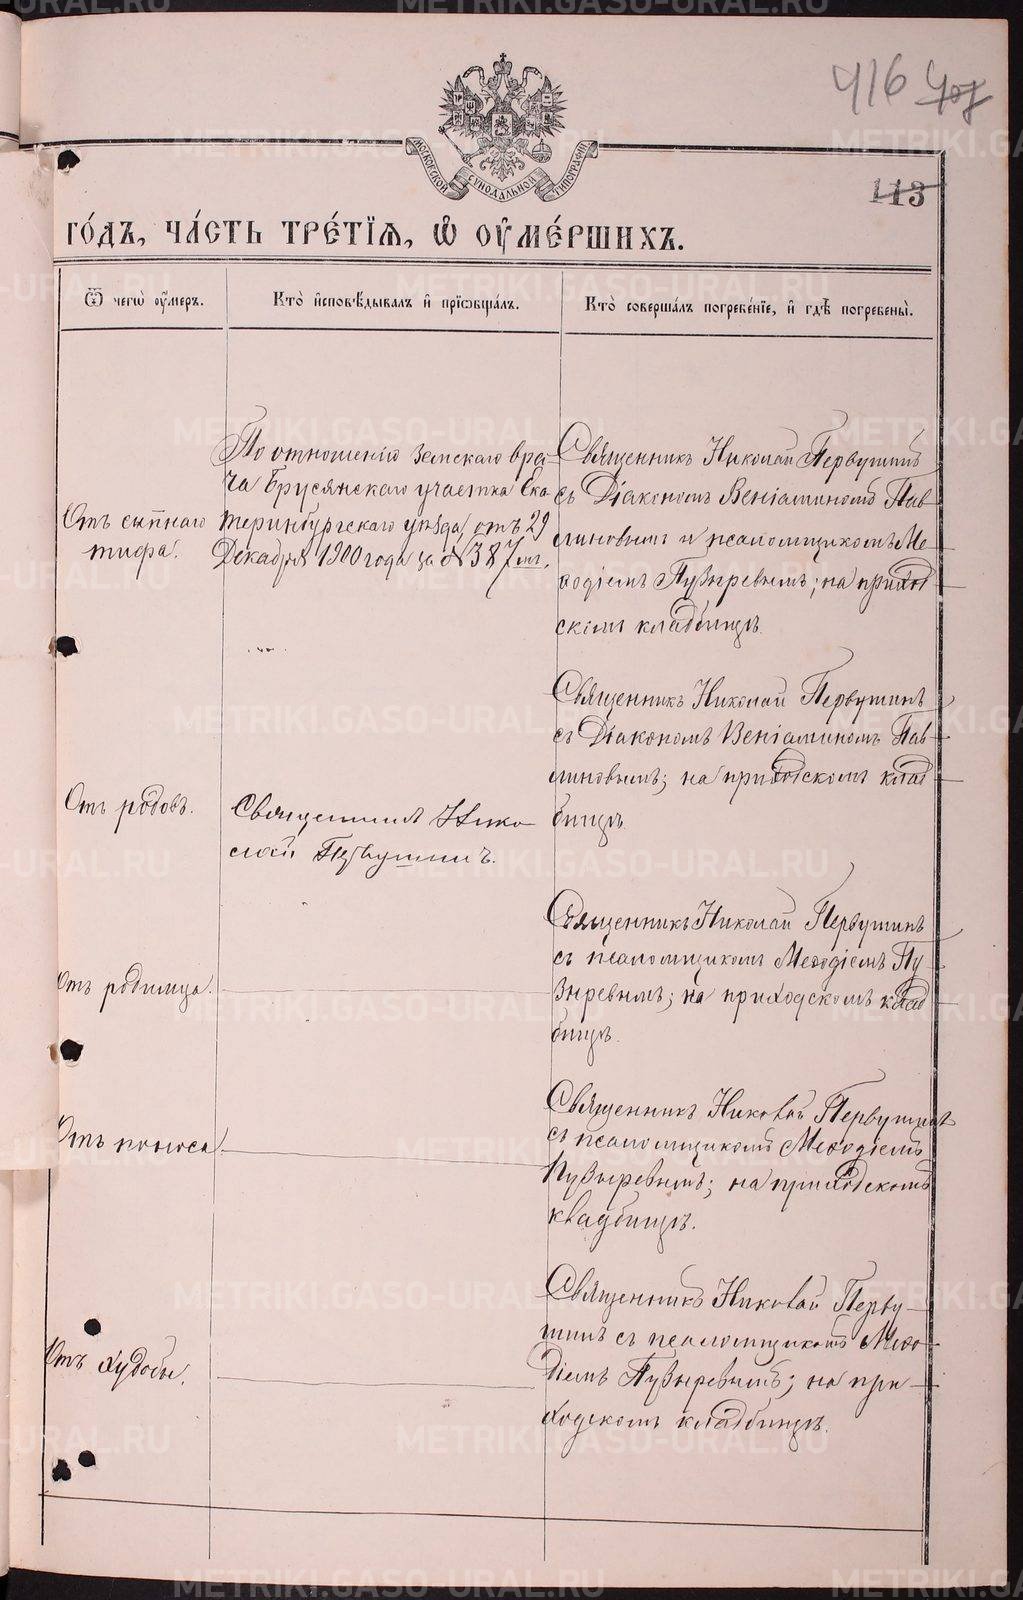 416 407
МОСКОВСКОЙ СѴНОДАЛЬНОЙ ТИПОГРАФІИ
113
ГО́ДЪ, ЧА́СТЬ ТРЕ́ТІѦ, Ѡ ОУ҆МЕ́РШИХЪ.
Ѿ чегѡ̀ оу҆́меръ.
Кто̀ и҆сповѣ́дывалъ и҆ прїѡбща́лъ.
Кто̀ соверша́лъ погребе́нїе, и҆ гдѣ̀ погребены̀.
Отъ сыпнаго
тифа.
По отношенію земскаго вра-
ча Брусянскаго участка Ека
теринбургскаго уѣзда, отъ 29
Декабря 1900 года за № 387мъ.
Священникъ Николай Первушинъ
съ Діакономъ Веніаминомъ Пав
линовымъ и псаломщикомъ Ме-
ѳодіемъ Пузыревымъ; на приход-
скомъ кладбищѣ.
Отъ родовъ.
Священникъ Нико-
лай Первушинъ.
Священникъ Николай Первушинъ
съ Діакономъ Веніаминомъ Пав-
линовымъ; на приходскомъ клад-
бищѣ.
Отъ родимца.
Священникъ Николай Первушинъ
съ псаломщикомъ Меѳодіемъ Пу-
зыревымъ; на приходскомъ клад-
бищѣ.
Отъ поноса.
Священникъ Николай Первушинъ
съ псаломщикомъ Меѳодіемъ
Пузыревымъ; на приходскомъ
кладбищѣ.
Отъ худобы.
Священникъ Николай Перву-
шинъ съ псаломщикомъ Меѳо-
діемъ Пузыревымъ; на при-
ходскомъ кладбищѣ.
METRIKI.GASO-URAL.RU